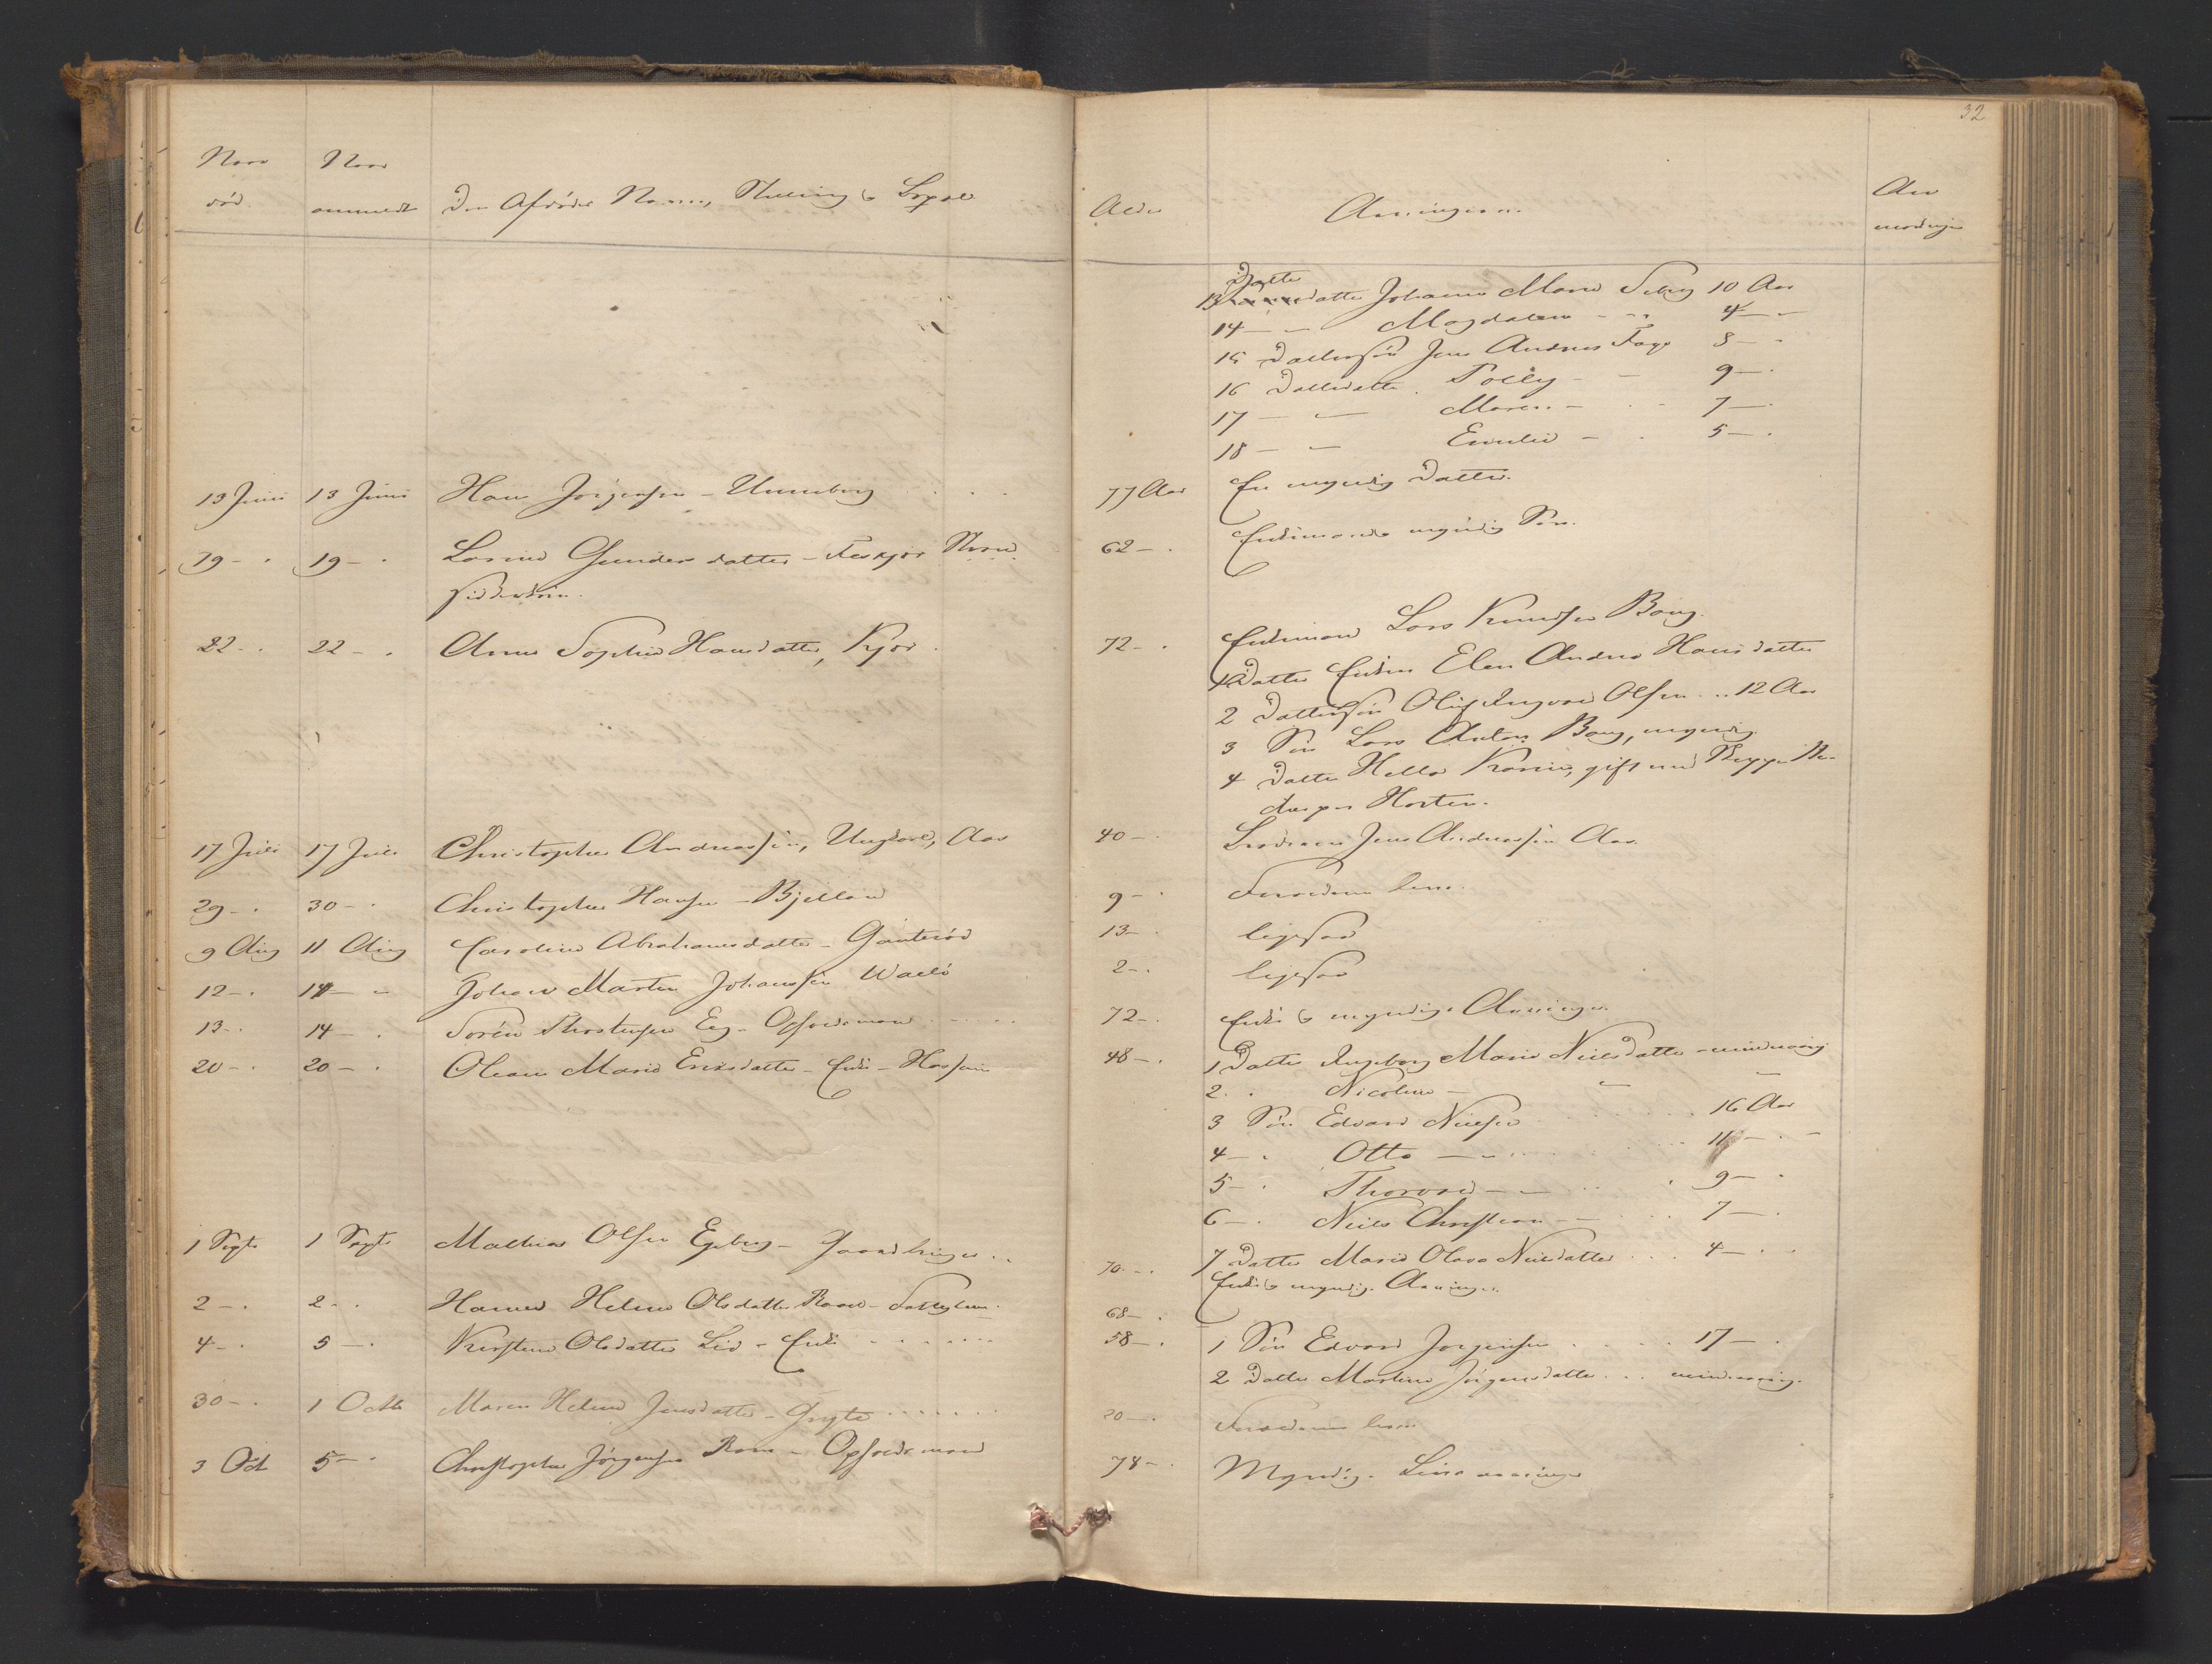 32
Naar død
Naar anmeldt
Den Afdødes Navn, Stilling & Bopæl
Alder
Arvingerne
An
13 Datterdatter Johanne Marie Seberg 10 Aar
14 — — Magdalene — — 4 —
15 Dattersøn Jens Andreas Fage 8 —
16 Datterdatter Polly — — 9 —
17 — — Maren — 7 —
18 — — Emilie — 5 —
13 Juni 13 Juni Hans Jørgensen – Unneberg 77 Aar En myndig Datter.
19 — 19 — Lovine Gundersdatter – 62 — Enkemand & myndig Søn.
22 — 22 — Anne Sophie Hansdatter, Kjær 72 — Enkemand Lars Knudsen Baug.
1 Datter Enken Elen Andrea Hansdatter
2 Dattersøn Oluf Ingvard Olsen 12 Aar
3 Søn Lars Anton Baug, myndig.
4 Datter Hella Karine, gift med
Horten.
17 Juli 17 Juli Christopher Andreassen, Ungkarl, Aas 40 — Broderen Jens Andreassen Aas.
29 — 30 — Christopher Hansen – Bjelland 9 — Forældrene leve.
9 Aug 11 Aug Caroline Abrahamsdatter – Gønterød 13 — ligesaa
12 — 14 — Johan Martin Johansen Valø 2 — ligesaa
13 — 14 — Søren Thorstensen Eeg – Opfostrmand 72 — Enke & myndige Arvinger.
20 — 20 — Oleane Marie Ericsdatter – Enke – 48 — 1 Datter Ingeborg Marie Nielsdatter – mindreaarig
2 — Nicoline — —
3 Søn Edvard Nielsen 16 Aar
4 — Otto — — 11 —
5 — Thorvald — — 9 —
6 — Niels Christian — — 7 —
7 Datter Marie Olava Nielsdatter 4 —
1 Septr 1 Septr Mathias Olsen Egeberg – Gaardbruger 70 — Enke & myndige Arvinger.
2 — 2 — Hanne Helene Olsdatter Raae – Fattiglem. 68 —
4 — 5 — Kirstine Olsdatter Lid – Enke 58 — 1 Søn Edvard Jørgensen 17 —
2 Datter Martine Jørgensdatter mindreaarig.
30 — 1 Octb Maren Helene Jensdatter – Gryte 20 — Forældrene leve.
3 Oct 5 — Christopher Jørgensen – 78 — Myndige Livsarvinger